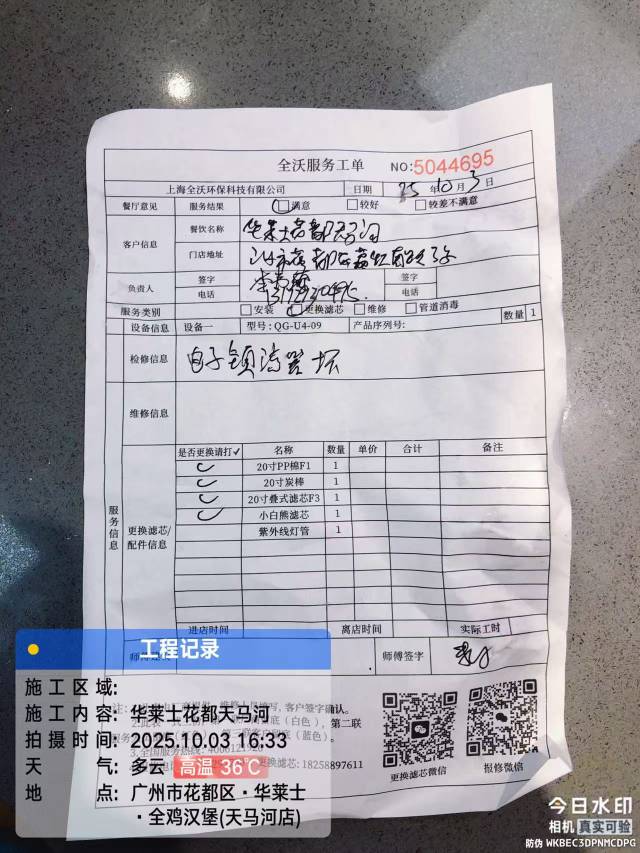 全沃服务工单 NO:5044695
上海全沃环保科技有限公司 日期 25年10月3日
餐厅意见 服务结果 满意 较好 较差不满意
客户信息 餐饮名称 华莱士花都天马河
门店地址
负责人 签字 签字
电话 电话
服务类别 安装 更换滤芯 维修 管道消毒
设备信息 设备一 型号:QG-U4-09 产品序列号: 数量 1
检修信息 电子镇流器坏
维修信息
服务信息 更换滤芯/配件信息
是否更换请打✓ 名称 数量 单价 合计 备注
20寸PP棉F1 1
20寸炭棒 1
20寸叠式滤芯F3 1
小白熊滤芯 1
紫外线灯管 1
进店时间 离店时间 实际工时
师傅签字
客户签字确认。
(白色),第二联
(蓝色)。
更换滤芯:18258897611
更换滤芯微信 报修微信
工程记录
施工区域:
施工内容:华莱士花都天马河
拍摄时间:2025.10.03 16:33
天气:多云 高温 36℃
地点:广州市花都区·华莱士
·全鸡汉堡(天马河店)
今日水印
相机 真实可验
防伪 WKBEC3DPNMCDPG